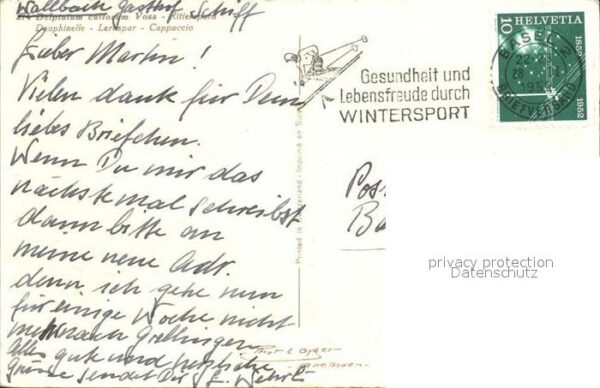 Wallbach Gasthof Schiff
Delphinium cultorum Voss - Rittersporn
Dauphinelle - Larkspur - Cappuccio
Lieber Martin!
Vielen dank für Dein
liebes Briefchen.
Wenn Du mir das
nächste mal schreibst
dann bitte an
meine neue Adr.
denn ich gehe nun
für einige Woche nicht
mehr nach Grellingen
Alles gute und herzliche
Grüsse sendet Dir E. Wehrli
Printed in Switzerland - Imprimé en Suisse
Gesundheit und
Lebensfreude durch
WINTERSPORT
10 HELVETIA
1852
1952
BASEL 2
BRIEFVERSAND
Pos
Ba
privacy protection
Datenschutz